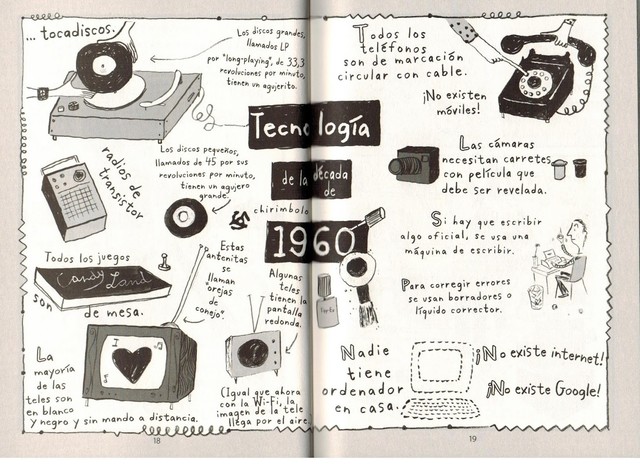 ... tocadiscos.
Los discos grandes,
llamados LP
por "long-playing", de 33,3
revoluciones por minuto,
tienen un agujerito.
radios de
transistor
Los discos pequeños,
llamados de 45 por sus
revoluciones por minuto,
tienen un agujero
grande.
chirimbolo
Tecnología
de la década
de
1960
Todos los juegos
Candy Land
son de mesa.
Estas
antenitas
se
llaman
"orejas
de
conejo".
Algunas
teles
tienen la
pantalla
redonda.
La
mayoría
de las
teles son
en blanco
y negro y sin mando a distancia.
(Igual que ahora
con la Wi-Fi, la
imagen de la tele
llega por el aire.
18
Todos los
teléfonos
son de marcación
circular con cable.
¡No existen
móviles!
Las cámaras
necesitan carretes
con película que
debe ser revelada.
Si hay que escribir
algo oficial, se usa una
máquina de escribir.
Para corregir errores
se usan borradores o
líquido corrector.
Nadie
tiene
ordenador
en casa.
¡No existe internet!
¡No existe Google!
19